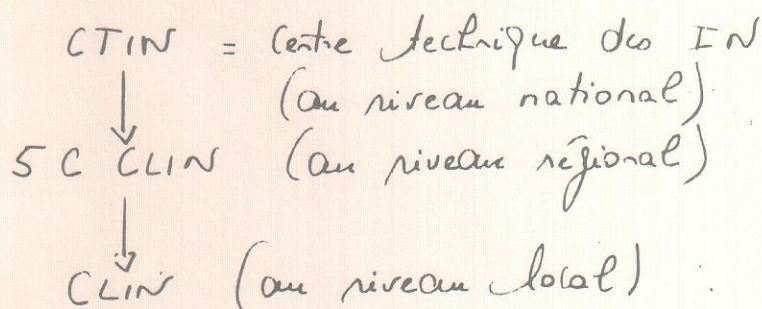 CTIN = Centre technique des IN
(au niveau national)
5 C CLIN (au niveau régional)
CLIN (au niveau local).